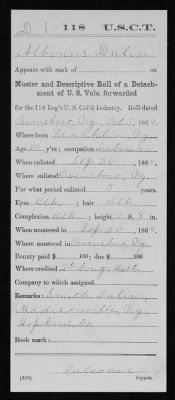 D | 118 | U.S.C.T.
Albinus Dulin
Appears with rank of
Muster and Descriptive Roll of a Detach-
ment of U. S. Vols. forwarded
for the 118 Reg't U. S. Col'd Infantry. Roll dated
Owensboro, Ky. Oct 3, 1864.
Where born Ky.
Age y'rs; occupation
When enlisted Sep. 20, 1864.
Where enlisted Owensboro, Ky.
For what period enlisted 3 years.
Eyes Blk; hair Blk
Complexion Blk; height 5 ft. 8 in.
When mustered in Sep 20, 1864.
Where mustered in Owensboro, Ky.
Bounty paid $ 100; due $ 100
Where credited 2" Cong. Dist.
Company to which assigned
Remarks:
Madisonville, Ky.
Hopkins Co
Book mark:
(339) Copyist.